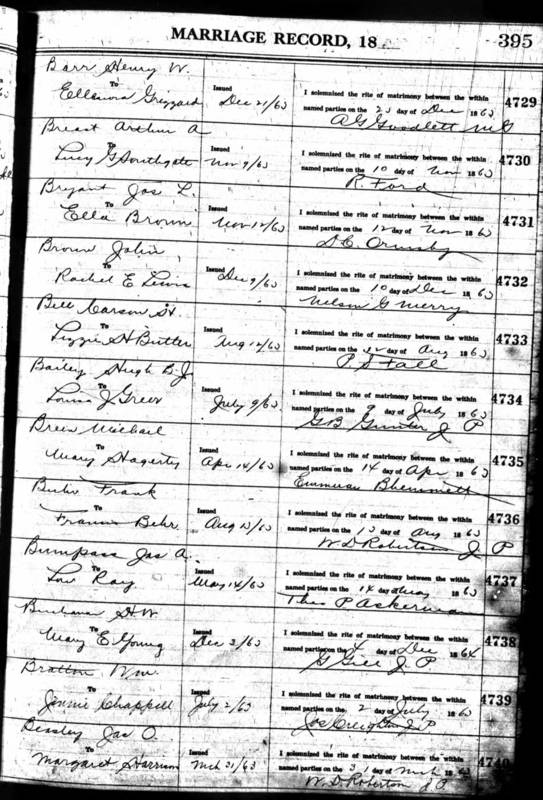 MARRIAGE RECORD, 18
395
Barr Henry W.
To
Issued
I solemnized the rite of matrimony between the within
4729
Ellenora Grizzard Dec 21/63
named parties on the 23 day of Dec 1863
A G Goodlett MG
Breast Arthur A
To
Issued
I solemnized the rite of matrimony between the within
4730
Lucy G Southgate Nov 9/63
named parties on the 10 day of Nov 1863
R. Ford
Bryant Jas L.
To
Issued
I solemnized the rite of matrimony between the within
4731
Ella Brown Nov 12/63
named parties on the 12 day of Nov 1863
Brown John
To
Issued
I solemnized the rite of matrimony between the within
4732
Rachel E Lewis Dec 9/63
named parties on the 10 day of Dec 1863
Nelson G Merry
Bell Carson
To
Issued
I solemnized the rite of matrimony between the within
4733
Lizzie H Butler Aug 12/63
named parties on the 12 day of Aug 1863
P S Fall
Bailey Hugh B. J
To
Issued
I solemnized the rite of matrimony between the within
4734
Louisa J Greer July 9/63
named parties on the 9 day of July 1863
G B Gunter J P
Breen Michael
To
Issued
I solemnized the rite of matrimony between the within
4735
Mary Hagerty Apr 14/63
named parties on the 14 day of Apr 1863
Frank
To
Issued
I solemnized the rite of matrimony between the within
4736
Behr Aug 13/63
named parties on the 13 day of Aug 1863
W. D Robertson J P
Bumpass Jas A.
To
Issued
I solemnized the rite of matrimony between the within
4737
Lou Ray May 14/63
named parties on the 14 day of May 1863
Theo P Ackerman
Buchanan H. W.
To
Issued
I solemnized the rite of matrimony between the within
4738
Mary E Young Dec 3/63
named parties on the 4 day of Dec 1864
J P
Bratton Wm.
To
Issued
I solemnized the rite of matrimony between the within
4739
Jennie Chappell July 2/63
named parties on the 2 day of July 1863
Jos Creighton J P
Bessley Jas O.
To
Issued
I solemnized the rite of matrimony between the within
4740
Margaret Harrison Mch 31/63
named parties on the 31 day of Mch 1863
W. D Roberton J P